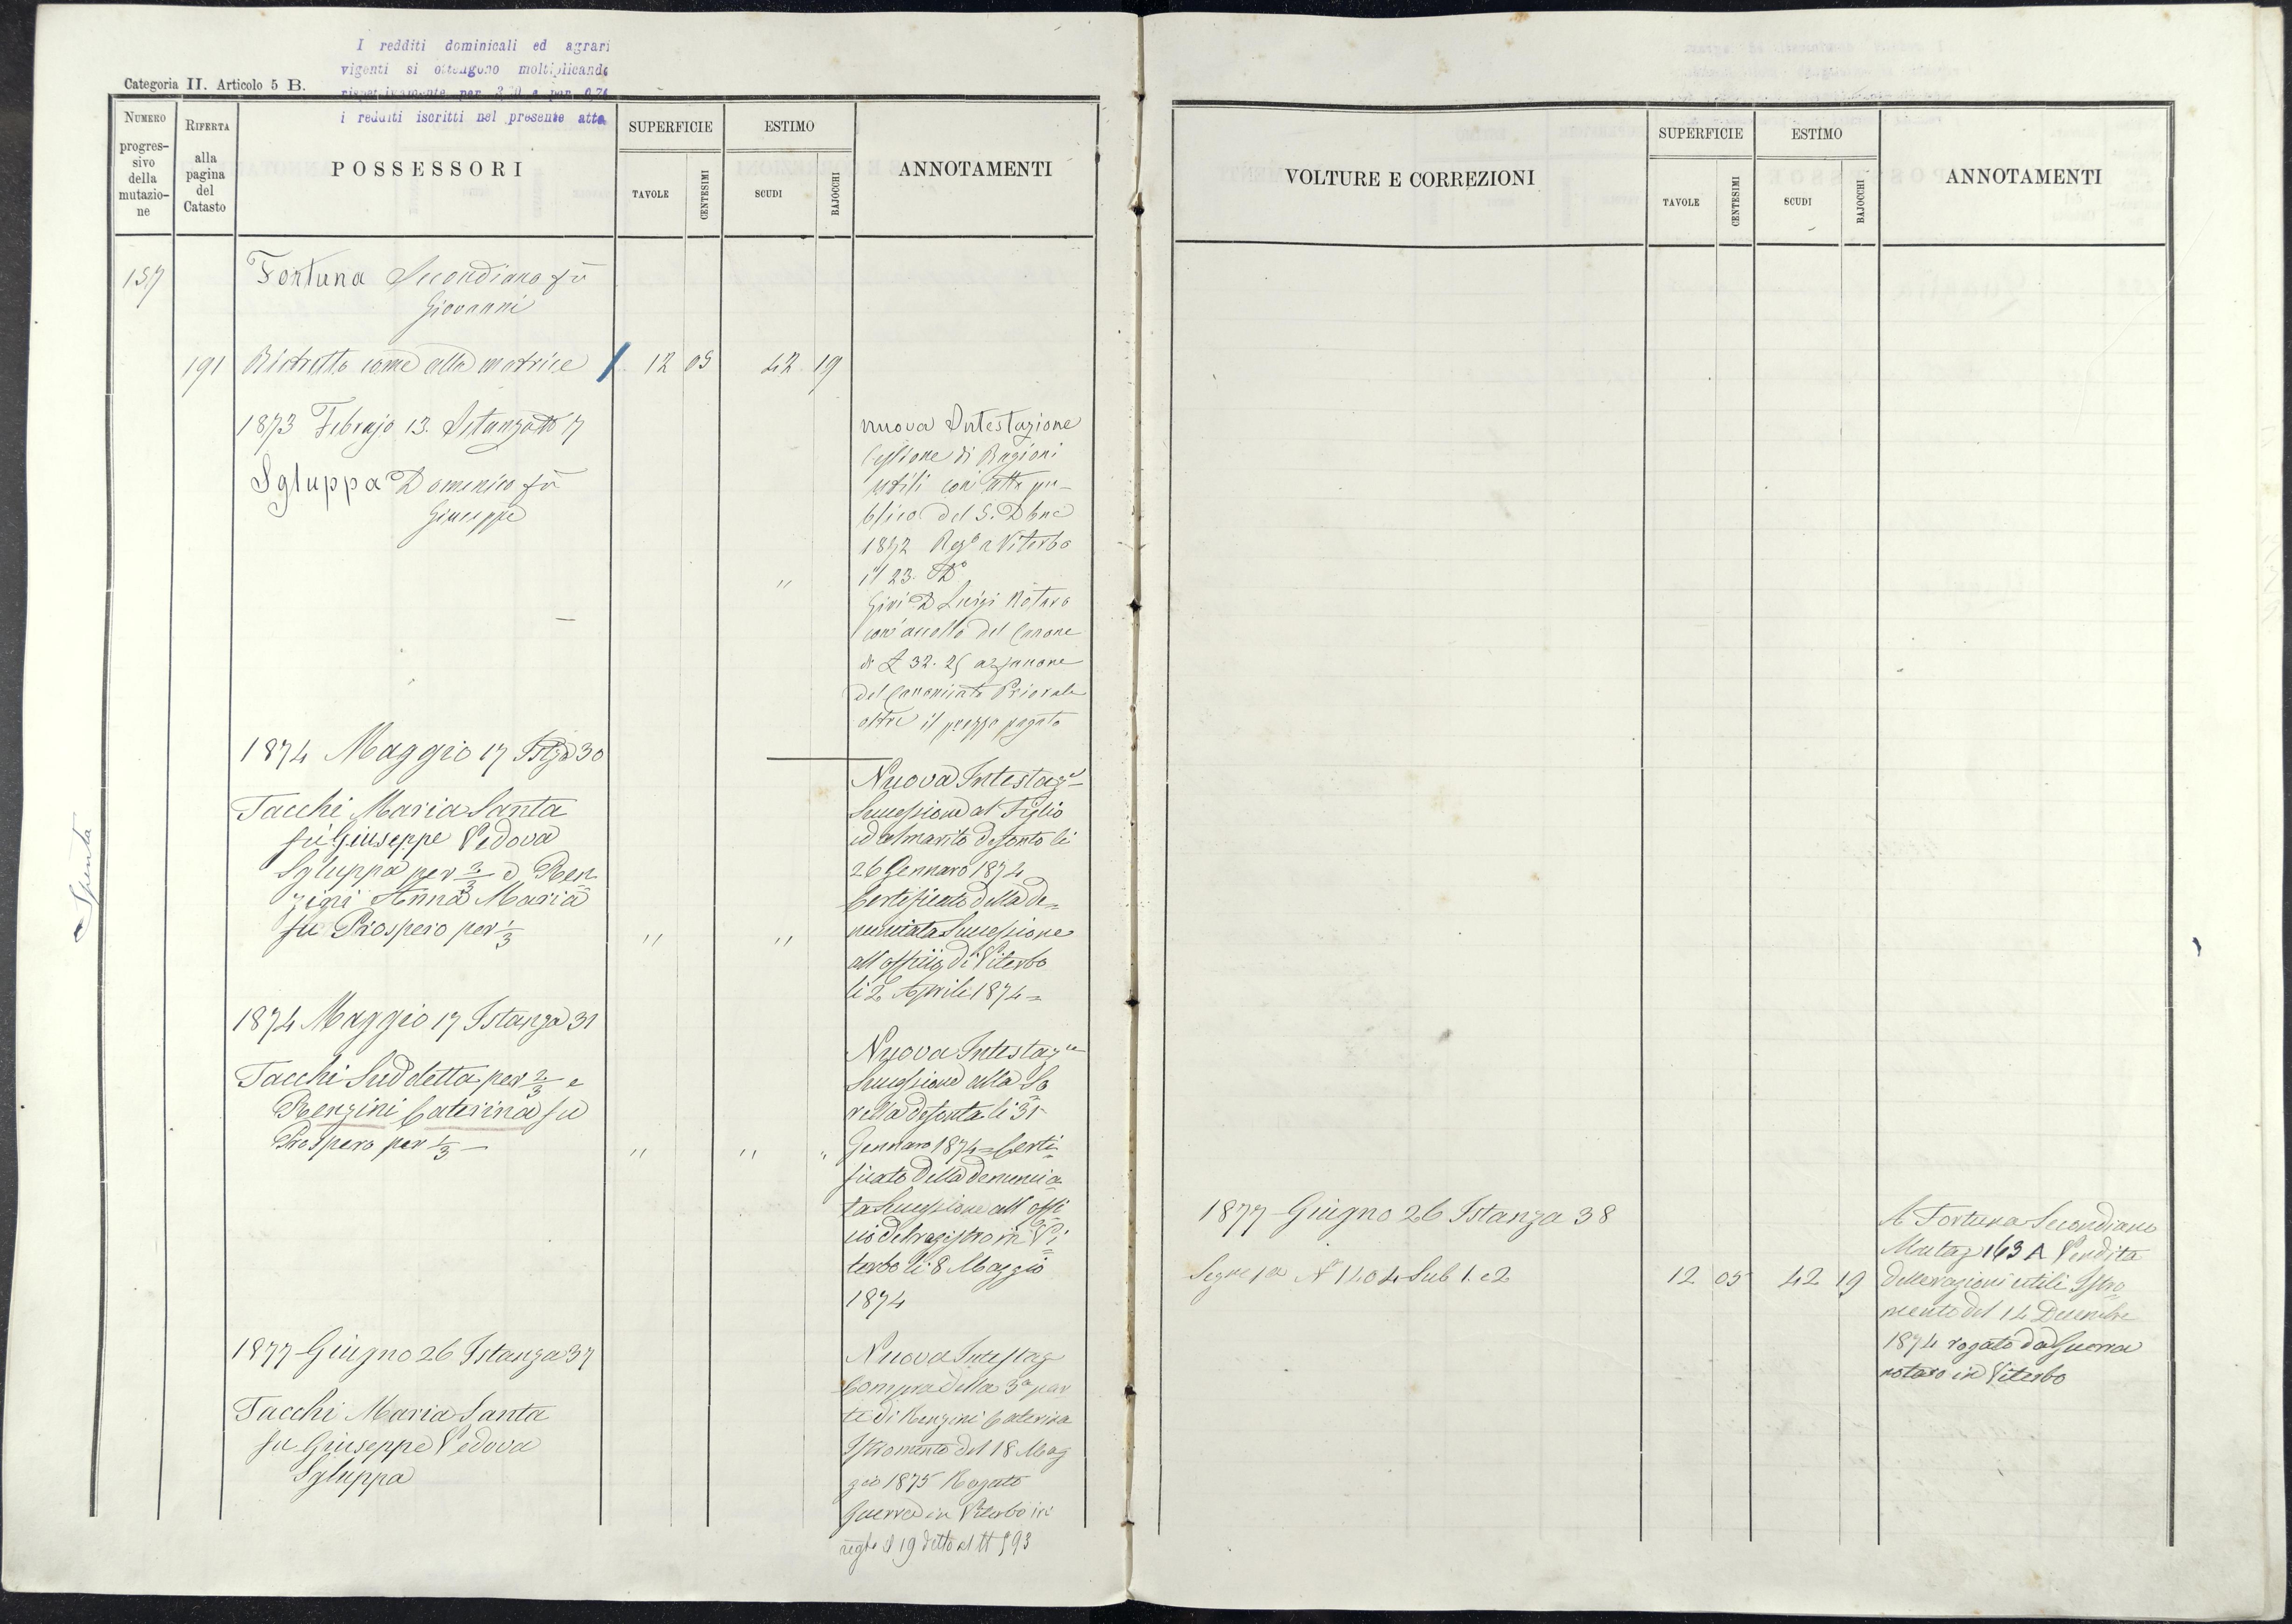 I redditi dominicali ed agrari
vigenti si ottengono moltiplicando
rispettivamente per 3,20 e per 0,74
i redditi iscritti nel presente atto
Categoria II. Articolo 5 B.
NUMERO
progres-
sivo
della
mutazio-
ne
RIFERTA
alla
pagina
del
Catasto
POSSESSORI
SUPERFICIE
TAVOLE
CENTESIMI
ESTIMO
SCUDI
BAJOCCHI
ANNOTAMENTI
157
Fortuna Secondiano fu
Giovanni
191 Ristretto come alla matrice 12 05 42 19
1873 Febrajo 13. Istanza 17
Sgluppa Domenico fu
Giuseppe
nuova Intestazione
Cessione di Ragioni
utili con atto pu-
blico del 5. Dbre
1872 Reg° a Viterbo
il 23. D°
D Luigi Notaro
con accollo del Canone
di £ 32. 25 a
del Canonicato Priorale
oltre il prezzo pagato
1874 Maggio 17 30
Tacchi Maria Santa
fu Giuseppe Vedova
Sgluppa per 2/3 e Ren
zini Anna Maria
fu Prospero per 1/3 " "
Nuova Intestaz°
Successione al Figlio
ed al marito defonto li
26 Gennaro 1874
Certificato della de=
nunciata Successione
all'officio di Viterbo
li 2 Aprile 1874=
1874 Maggio 17 Istanza 31
Tacchi Suddetta per 2/3 e
Renzini Caterina fu
Prospero per 1/3 — " " "
Nuova Intestaz°
Successione alla So
rella defonta li 31
Gennaro 1874= Certi=
ficato della denuncia=
ta Successione all'offi
cio del registro in Vi
terbo li 8 Maggio
1874
1877 Giugno 26 Istanza 37
Tacchi Maria Santa
fu Giuseppe Vedova
Sgluppa
Nuova Intestaz
Compra della 3a par
te di Renzini Caterina
Istromento del 18 Mag
gio 1875 Rogato
Guerra in Viterbo ivi
il 19 detto al N 593
Spenta
VOLTURE E CORREZIONI
SUPERFICIE
TAVOLE
CENTESIMI
ESTIMO
SCUDI
BAJOCCHI
ANNOTAMENTI
1877 Giugno 26 Istanza 38
Segue 1a N 1404 Sub 1. e 2 12 05 42 19
A Fortuna Secondiano
Mutaz 163 A Vendita
delle ragioni utili Istro
mento del 14 Decembre
1874 rogato da Guerra
notaro in Viterbo